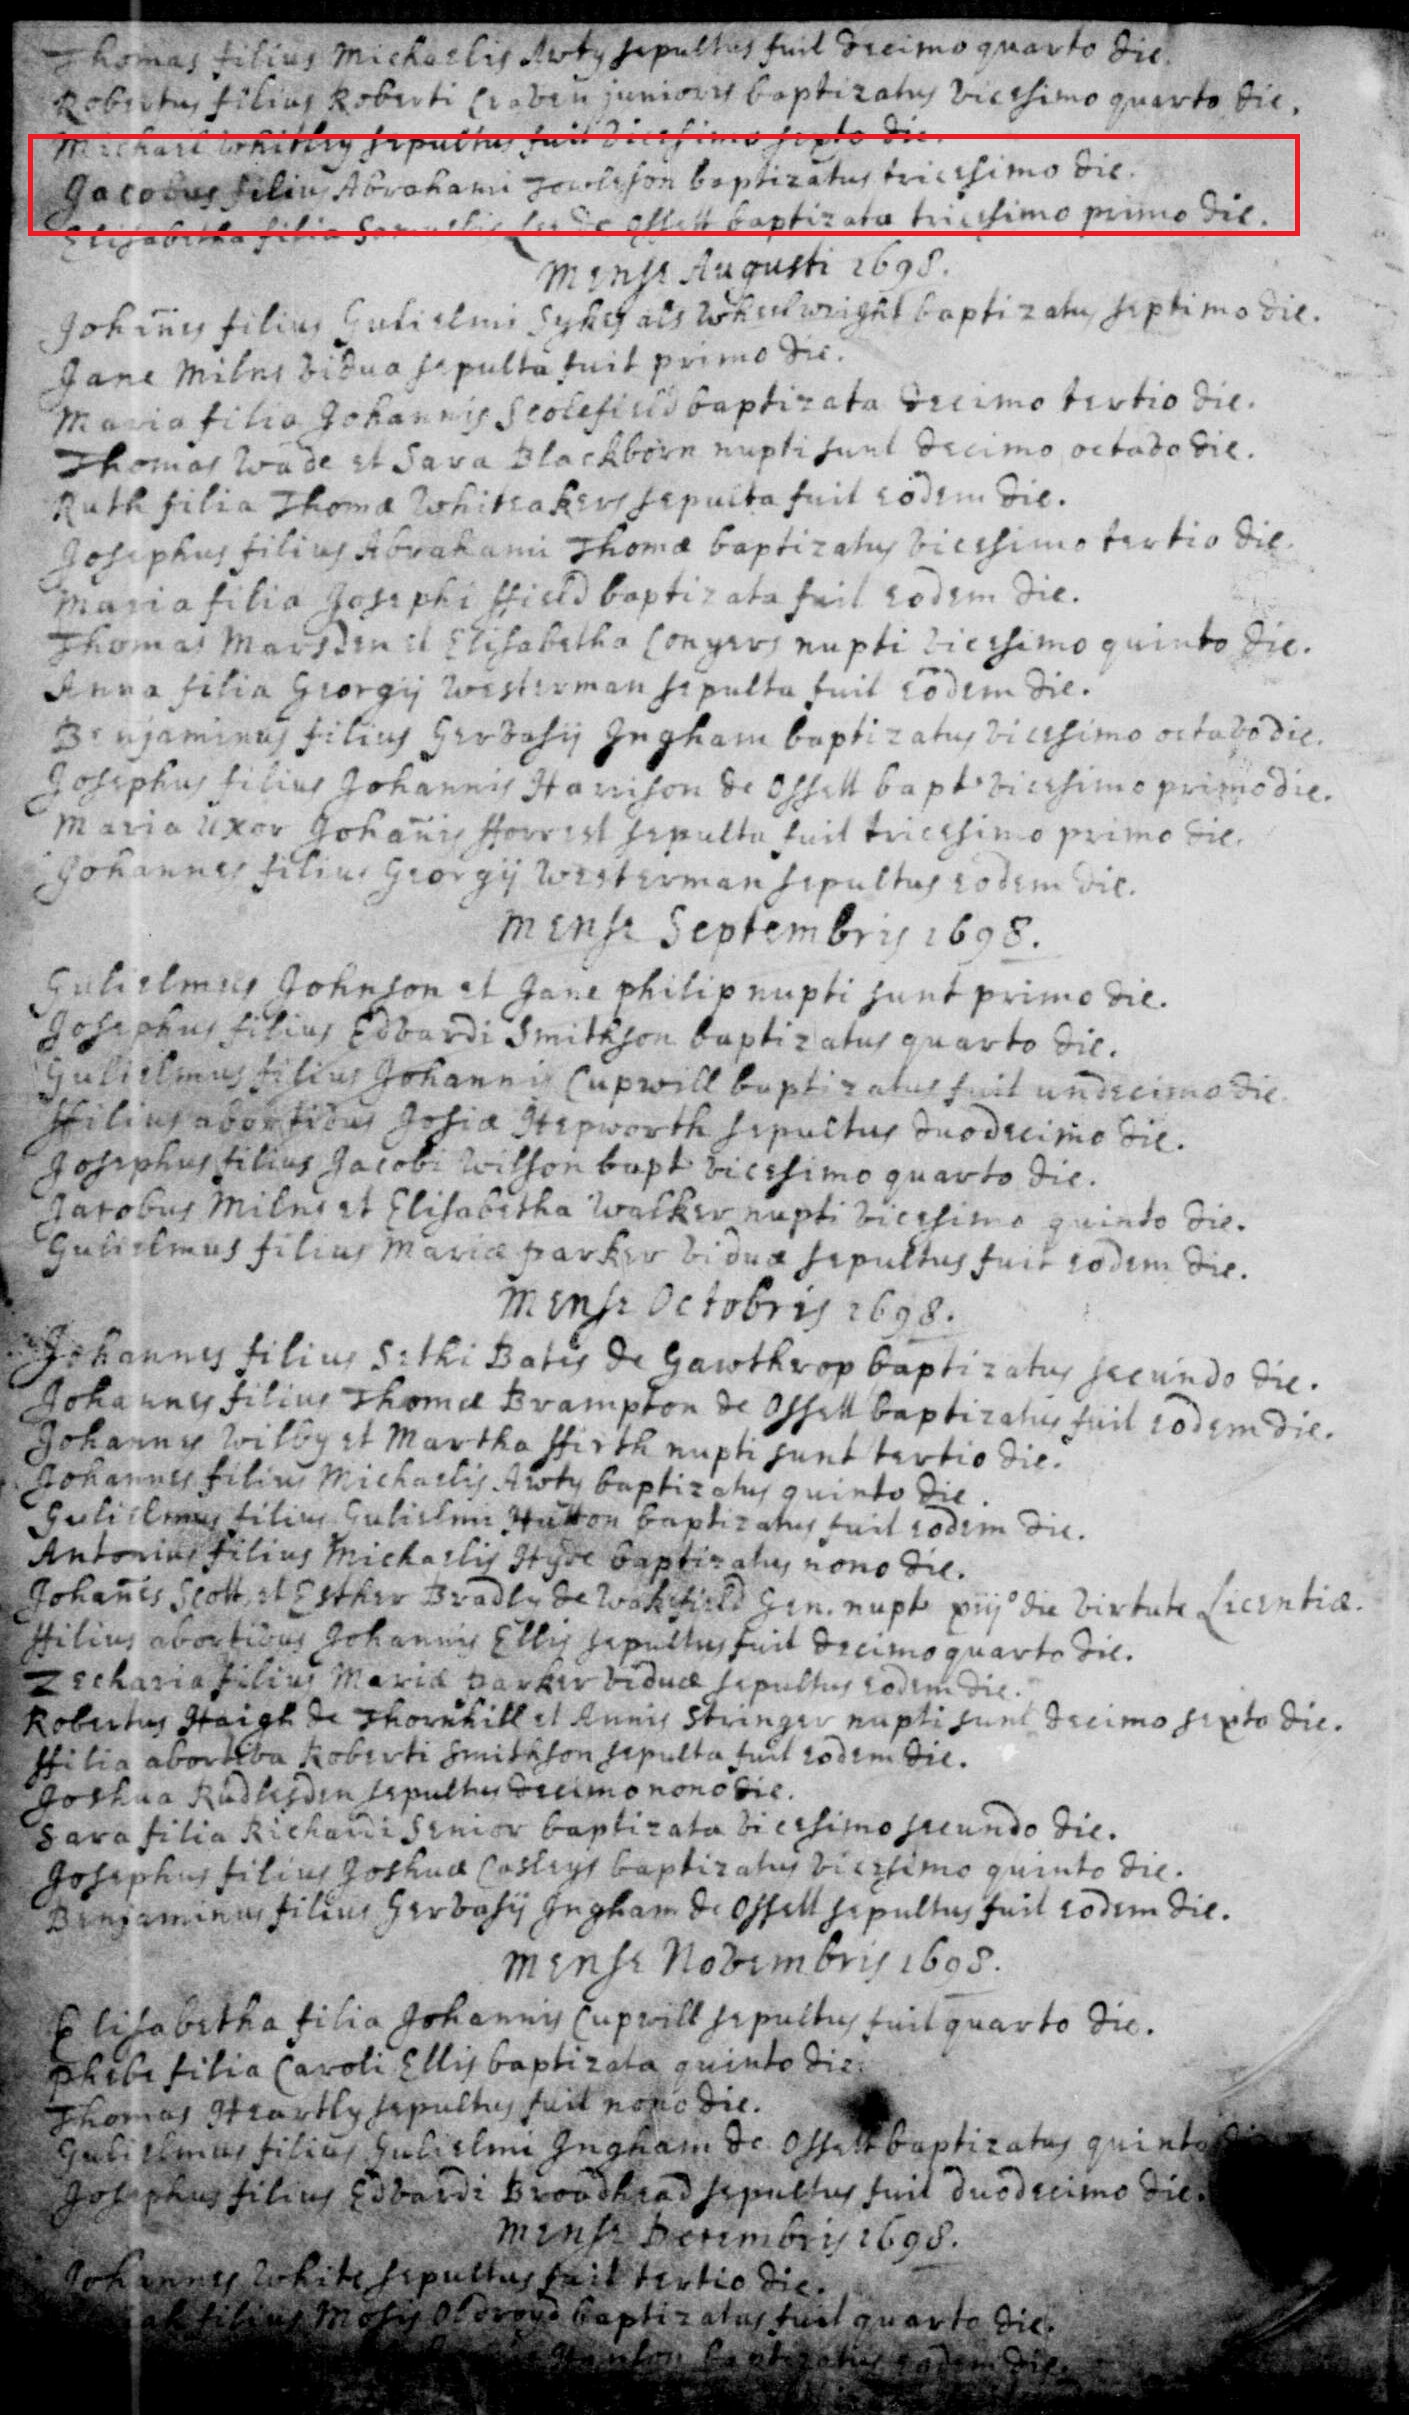 Thomas filius Michaelis Awty sepultus fuit decimo quarto die.
Robertus filius Roberti Craven junioris baptizatus vicesimo quarto die.
Michael Whitley sepultus fuit vicesimo sexto die.
Jacobus filius Abrahami Towleson baptizatus tricesimo die.
Elisabetha filia Samuelis Lee de Ossett baptizata tricesimo primo die.
Mense Augusti 1698.
Johañes filius Gulielmi Sykes als Wheelwright baptizatus septimo die.
Jane Milns vidua sepulta fuit primo die.
Maria filia Johannis Scolefield baptizata decimo tertio die.
Thomas Wade et Sara Blackborn nupti sunt decimo octavo die.
Ruth filia Thomæ Whiteakers sepulta fuit eodem die.
Josephus filius Abrahami Thomæ baptizatus vicesimo tertio die.
Maria filia Josephi ffield baptizata fuit eodem die.
Thomas Marsden et Elisabetha Conyers nupti vicesimo quinto die.
Anna filia Georgij Westerman sepulta fuit eodem die.
Benjaminus filius Gervasij Ingham baptizatus vicesimo octavo die.
Josephus filius Johannis Harrison de Ossett bapt vicesimo primo die.
Maria uxor Johañis fforrest sepulta fuit tricesimo primo die.
Johannes filius Georgij Westerman sepultus eodem die.
Mense Septembris 1698.
Gulielmus Johnson et Jane philip nupti sunt primo die.
Josephus filius Edvardi Smithson baptizatus quarto die.
Gulielmus filius Johannis Cupwill baptizatus fuit undecimo die.
ffilius abortivus Josiæ Hepworth sepultus duodecimo die.
Josephus filius Jacobi Wilson bapt vicesimo quarto die.
Jacobus Milns et Elisabetha Walker nupti vicesimo quinto die.
Gulielmus filius Mariæ parker viduæ sepultus fuit eodem die.
Mense Octobris 1698.
Johannes filius Sethi Bates de Gawthrop baptizatus secundo die.
Johannes filius Thomæ Brampton de Ossett baptizatus fuit eodem die.
Johannes Wilby et Martha ffirth nupti sunt tertio die.
Johannes filius Michaelis Awty baptizatus quinto die.
Gulielmus filius Gulielmi Hutton baptizatus fuit eodem die.
Antonius filius Michaelis Hyde baptizatus nono die.
Johañes Scott et Esther Bradly de Wakefield Gen. nupt xiij° die virtute Licentiæ.
ffilius abortivus Johannis Ellis sepultus fuit decimo quarto die.
Zecharia filius Mariæ parker viduæ sepultus eodem die.
Robertus Haigh de Thornhill et Annis Stringer nupti sunt decimo sexto die.
ffilia abortiva Roberti Smithson sepulta fuit eodem die.
Joshua Rudlesden sepultus decimo nono die.
Sara filia Richardi Senior baptizata vicesimo secundo die.
Josephus filius Joshuæ Casleys baptizatus vicesimo quinto die.
Benjaminus filius Gervasij Ingham de Ossett sepultus fuit eodem die.
Mense Novembris 1698.
Elisabetha filia Johannis Cupwill sepultus fuit quarto die.
Phebe filia Caroli Ellis baptizata quinto die.
Thomas Heartly sepultus fuit nono die.
Gulielmus filius Gulielmi Ingham de Ossett baptizatus quinto
Josephus filius Edvardi Broadhead sepultus fuit duodecimo die.
Mense Decembris 1698.
Johannes White sepultus fuit tertio die.
filius Mosis Oldroyd baptizatus fuit quarto die.
Hanson baptizatus eodem die.